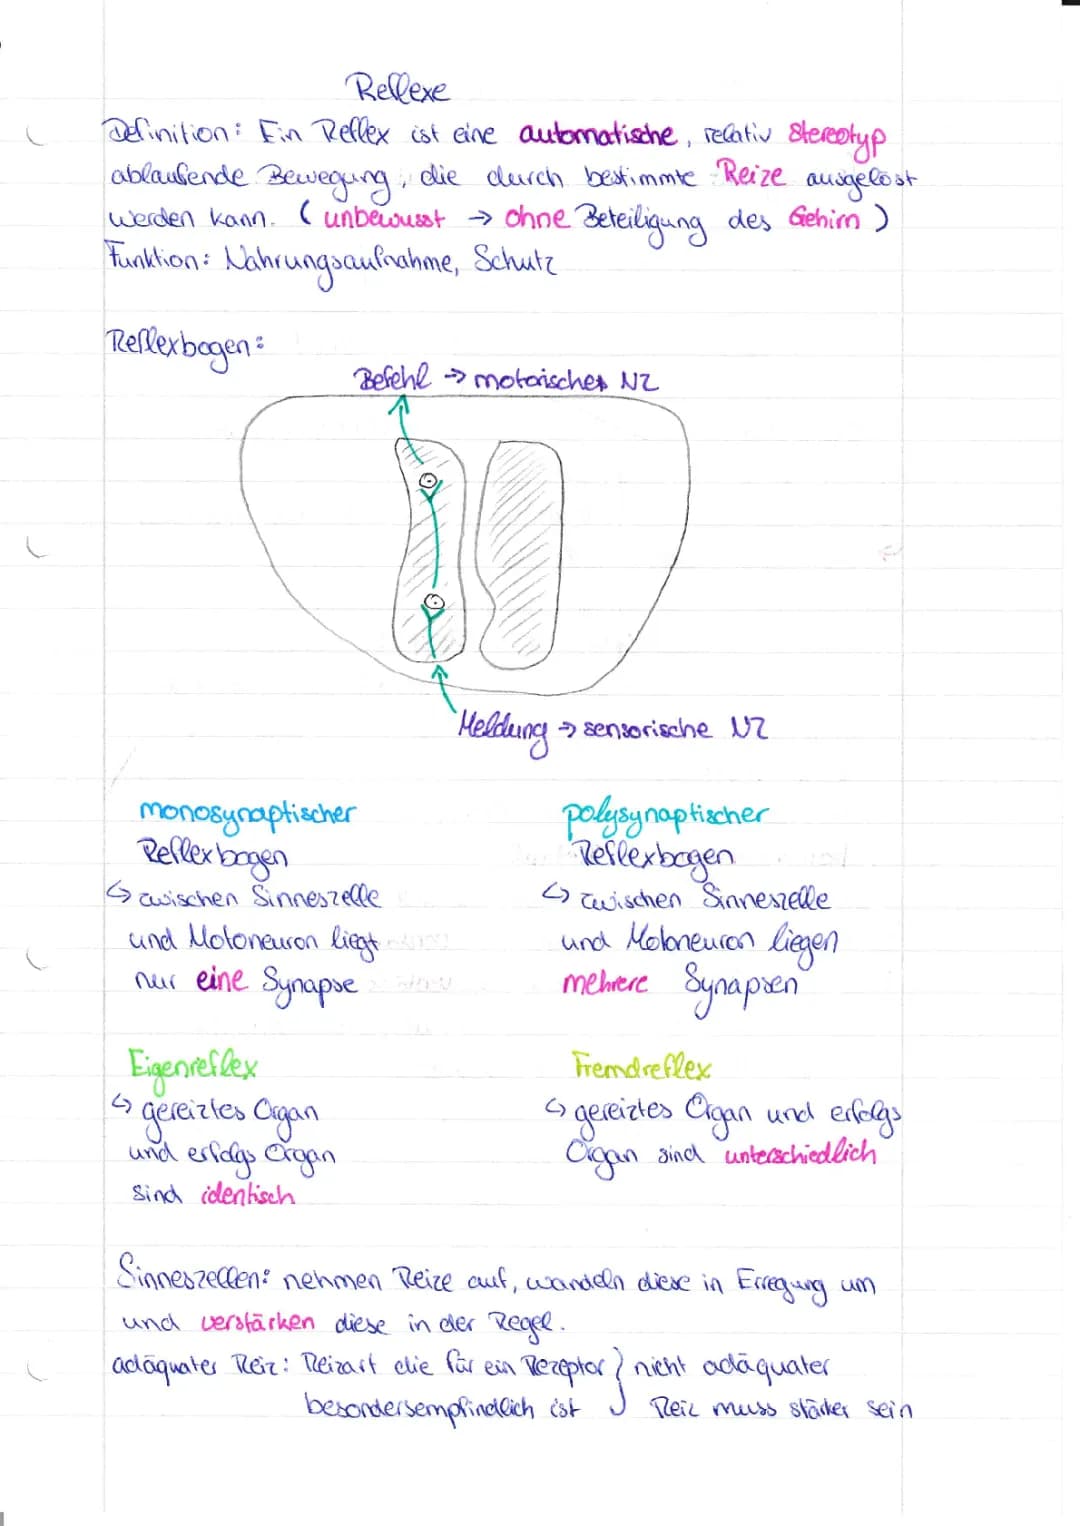 Reflexe
Definition: Ein Reflex ist eine automatische, relativ stereotyp
ablaufende Bewegung, die durch bestimmte Reize ausgelöst
werden kann. ( unbewusst → ohne Beteiligung des Gehirn )
Funktion: Nahrungsaufnahme, Schutz
Reflexbogen:
Befehl → motorisches NZ
Meldung → sensorische NZ
monosynaptischer
Reflexbogen
↳ zwischen Sinneszelle
und Motoneuron liegt
nur eine Synapse
polysynaptischer
Reflexbogen
↳ zwischen Sinneszelle
und Motoneuron liegen
mehrere Synapsen
Eigenreflex
↳ gereiztes Organ
und erfolgs Organ
sind identisch
Fremdreflex
↳ gereiztes Organ und erfolgs
Organ sind unterschiedlich
Sinneszellen: nehmen Reize auf, wandeln diese in Erregung um
und verstärken diese in der Regel.
adäquater Reiz: Reizart die für ein Rezeptor } nicht adäquater
besondersempfindlich ist Reiz muss stärker sein